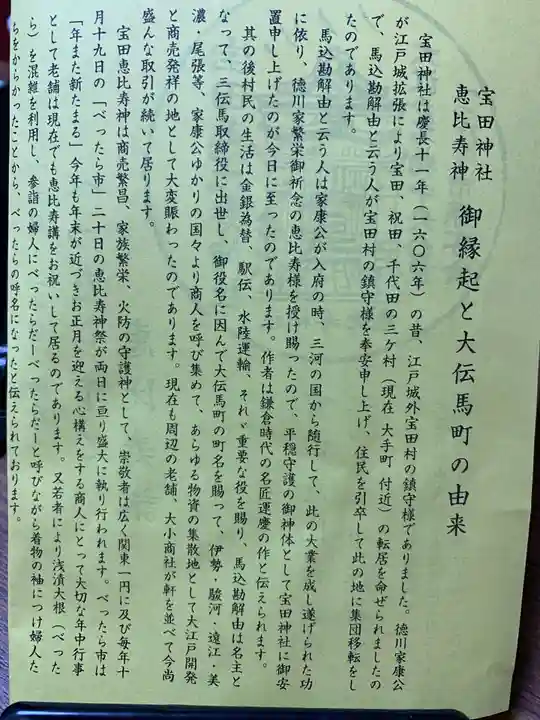 宝田神社
恵比寿神 御縁起と大伝馬町の由来
宝田神社は慶長十一年（一六〇六年）の昔、江戸城外宝田村の鎮守様でありました。徳川家康公
が江戸城拡張により宝田、祝田、千代田の三ケ村（現在 大手町 付近）の転居を命ぜられましたの
で、馬込勘解由と云う人が宝田村の鎮守様を奉安申し上げ、住民を引卒して此の地に集団移転をし
たのであります。
馬込勘解由と云う人は家康公が入府の時、三河の国から随行して、此の大業を成し遂げられた功
に依り、徳川家繁栄御祈念の恵比寿様を授け賜ったので、平穏守護の御神体として宝田神社に御安
置申し上げたのが今日に至ったのであります。作者は鎌倉時代の名匠運慶の作と伝えられます。
其の後村民の生活は金銀為替、駅伝、水陸運輸、それゞ重要な役を賜り、馬込勘解由は名主と
なって、三伝馬取締役に出世し、御役名に因んで大伝馬町の町名を賜って、伊勢・駿河・遠江・美
濃・尾張等、家康公ゆかりの国々より商人を呼び集めて、あらゆる物資の集散地として大江戸開発
と商売発祥の地として大変賑わったのであります。現在も周辺の老舗、大小商社が軒を並べて今尚
盛んな取引が続いて居ります。
宝田恵比寿神は商売繁昌、家族繁栄、火防の守護神として、崇敬者は広く関東一円に及び毎年十
月十九日の「べったら市」二十日の恵比寿神祭が両日に亘り盛大に執り行われます。べったら市は
「年また新たまる」今年も年末が近づきお正月を迎える心構えをする商人にとって大切な年中行事
として老舗は現在でも恵比寿講をお祝いして居るのであります。又若者により浅漬大根（べった
ら）を混雑を利用し、参詣の婦人にべったらだーべったらだーと呼びながら着物の袖につけ婦人た
ちをからかったことから、べったらの呼名になったと伝えられております。